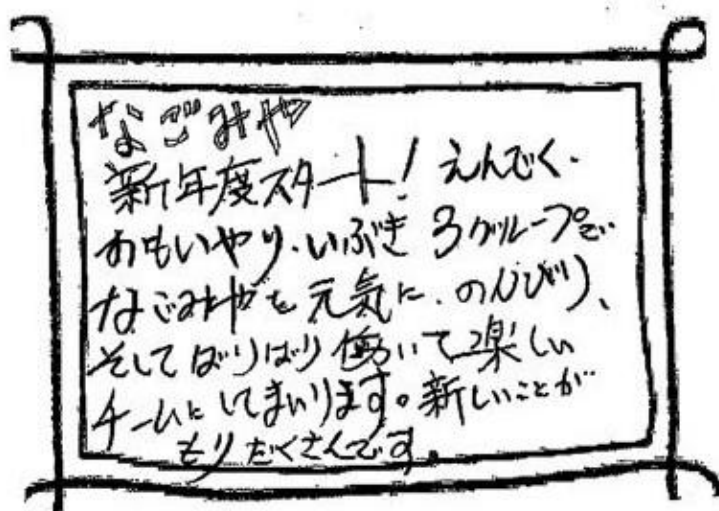 なごみや
新年度スタート！えんでく・
おもいやり・いぶき 3グループで
なごみやを元気に、のんびり、
そしてばりばり働いて楽しい
チームにしてまいります。新しいことが
もりだくさんです。